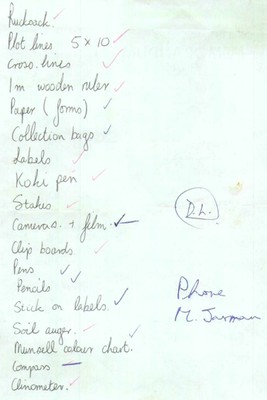 Rucksack ✓
Plot lines 5 x 10 ✓
Cross lines ✓
1m wooden ruler ✓
Paper (forms) ✓
Collection bags ✓
Labels ✓
Koki pen ✓
Stakes ✓
Cameras + film ✓
Clip boards ✓
Pens ✓
Pencils ✓
Stick on labels. ✓
Soil auger. ✓
Munsell colour chart. ✓
Compass —
Clinometer. ✓
D.L.
Phone
M. Jarman